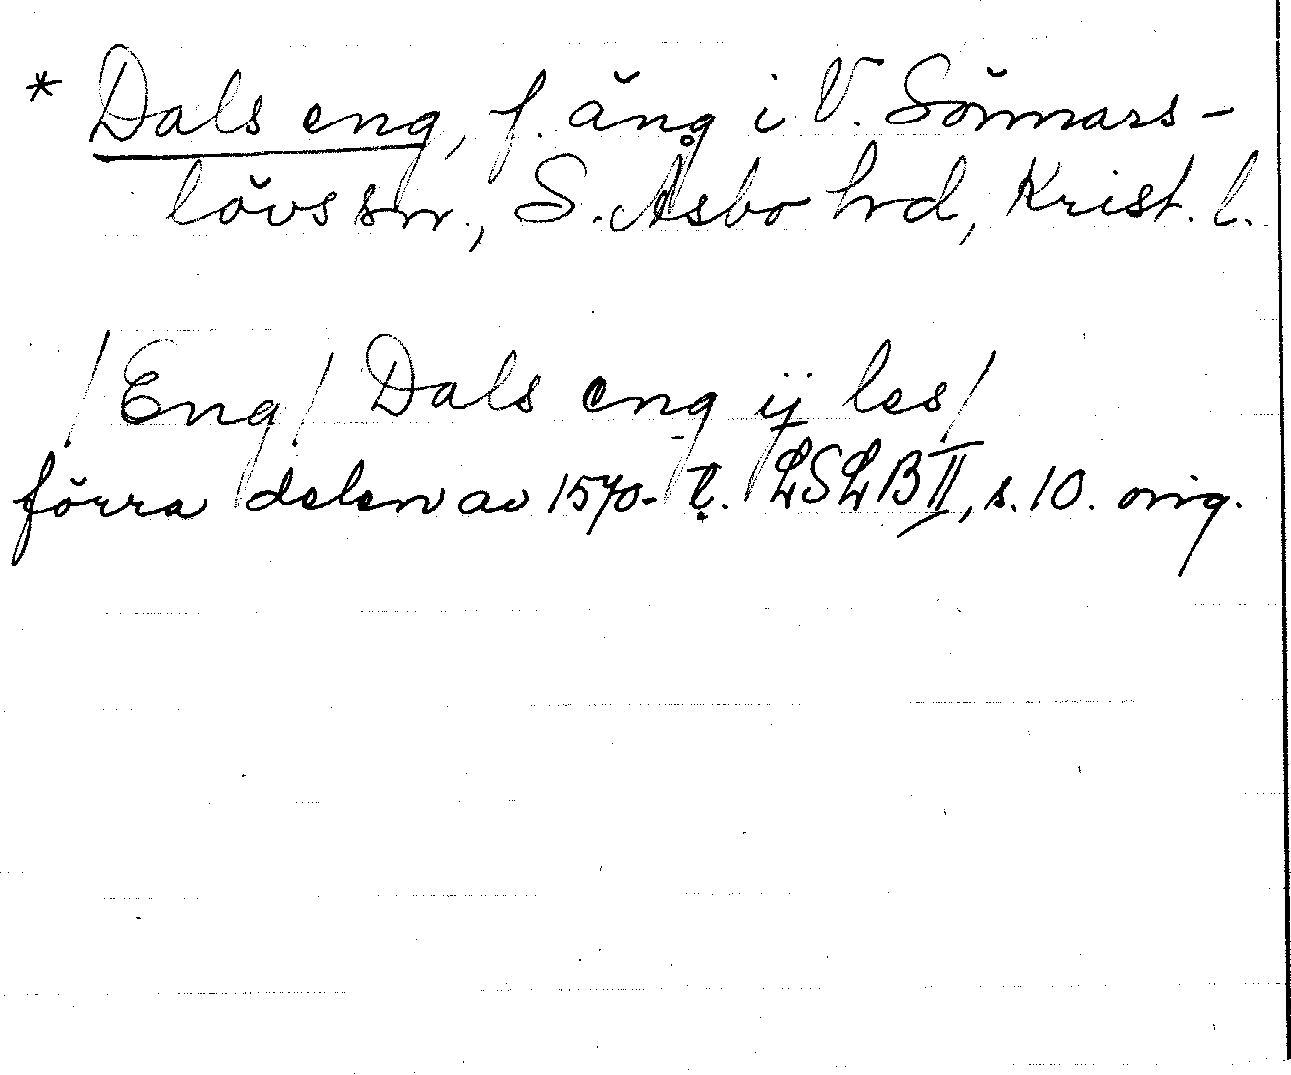 * Dals eng, f. äng i V. Sönnars-
lövs sn., S. Åsbo hrd, Krist. l.
/Eng/ Dals eng ij les/
förra delen av 1570- t. LSLB II, s. 10. orig.